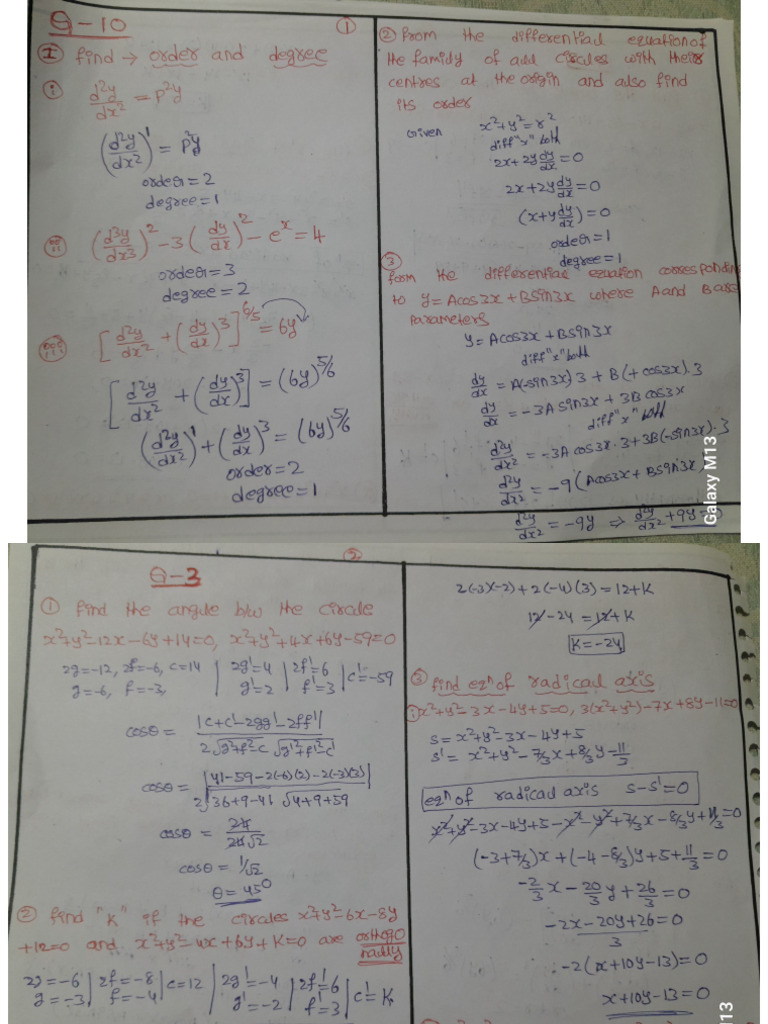 Q-10
①
Ⓘ find → order and degree
ⓘ d²y/dx² = p²y
(d²y/dx²)¹ = p²y
order = 2
degree = 1
ⓘⓘ (d³y/dx³)² - 3(dy/dx)² - eˣ = 4
order = 3
degree = 2
ⓘⓘⓘ [d²y/dx² + (dy/dx)³]^6/5 = 6y
[d²y/dx² + (dy/dx)³] = (6y)^5/6
(d²y/dx²)¹ + (dy/dx)³ = (6y)^5/6
order = 2
degree = 1
② From the differential equation of
the family of all circles with their
centres at the origin and also find
its order
Given x²+y²=r²
diff "x" both
2x+2y dy/dx = 0
2x+2y dy/dx = 0
(x+y dy/dx) = 0
order = 1
degree = 1
③
form the differential equation corresponding
to y=Acos3x+Bsin3x where A and B are
Parameters
y=Acos3x+Bsin3x
diff "x" both
dy/dx = A(-sin3x)3 + B(+cos3x).3
dy/dx = -3Asin3x + 3Bcos3x
diff "x" both
d²y/dx² = -3Acos3x.3+3B(-sin3x).3
d²y/dx² = -9(Acos3x+Bsin3x
d²y/dx² = -9y ⇒ d²y/dx² +9y=0
Galaxy M13
②
Q-3
① find the angle b/w the circle
x²+y²-12x-6y+14=0, x²+y²+4x+6y-59=0
2g=-12, 2f=-6, c=14 | 2g'=4 | 2f'=6 | c'=-59
g=-6, f=-3, | g'=2 | f'=3
cosθ = |c+c'-2gg'-2ff'| / 2√g²+f²-c √g'²+f'²-c'
cosθ = |41-59-2(-6)(2)-2(-3)(3)| / 2√36+9-41 √4+9+59
cosθ = 24/24√2
cosθ = 1/√2
θ = 45°
② find "K" if the circles x²+y²-6x-8y
+12=0 and x²+y²-4x+6y+K=0 are orthogo
nally
2g=-6 | 2f=-8 | c=12 | 2g'=-4 | 2f'=6 | c'=K
g=-3 | f=-4 | g'=-2 | f'=3
2(-3)(-2)+2(-4)(3)=12+K
12-24=12+K
K=-24
③ find eqⁿ of radical axis
ⓘ x²+y²-3x-4y+5=0, 3(x²+y²)-7x+8y-11=0
S=x²+y²-3x-4y+5
S'= x²+y²-7/3x+8/3y-11/3
eqⁿ of radical axis S-S'=0
x²+y²-3x-4y+5-x²-y²+7/3x-8/3y+11/3=0
(-3+7/3)x+(-4-8/3)y+5+11/3=0
-2/3x-20/3y+26/3=0
-2x-20y+26/3=0
-2(x+10y-13)=0
x+10y-13=0
M13